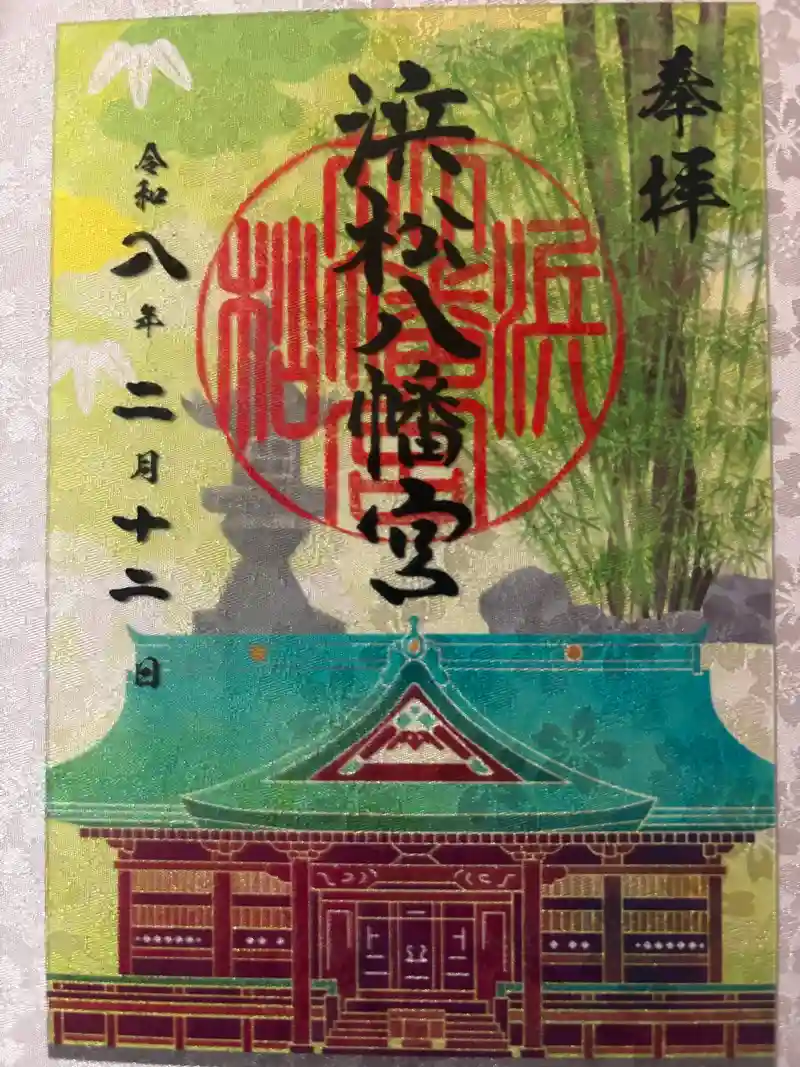 奉拝
浜松八幡宮
令和八年二月十二日
浜松
八幡宮